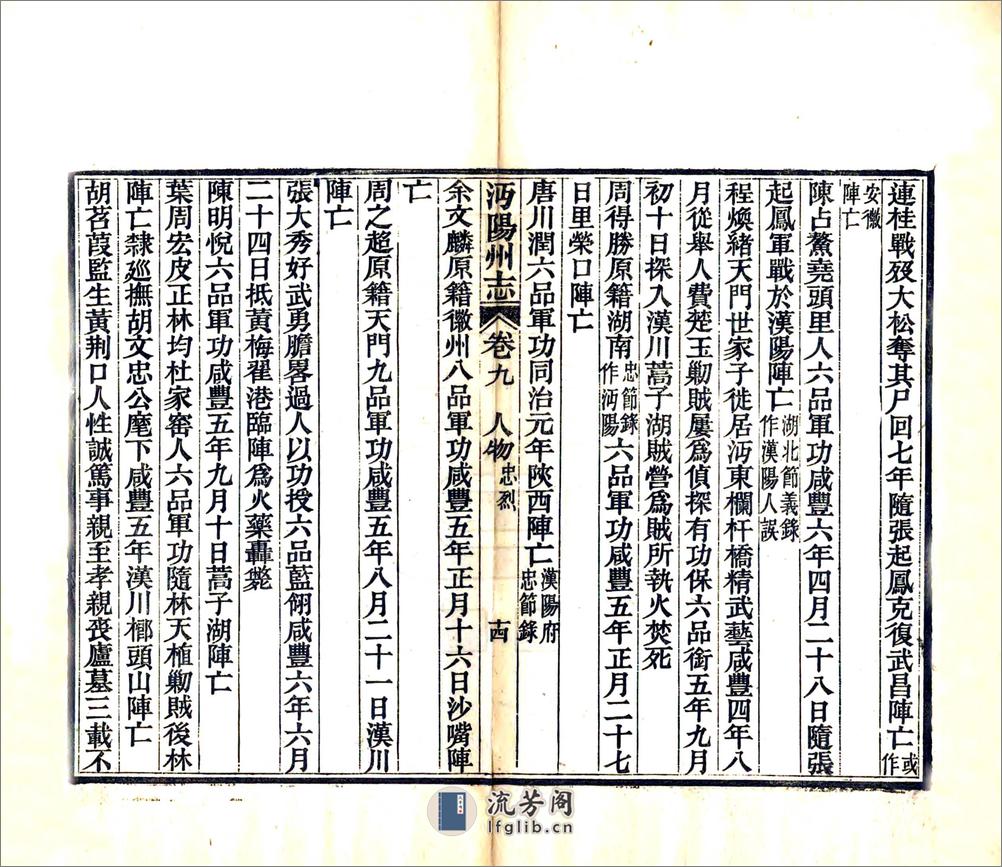 連桂戰歿大松奪其尸回七年隨張起鳳克復武昌陣亡或作
安徽陣亡
陳占鰲堯頭里人六品軍功咸豐六年四月二十八日隨張
起鳳軍戰於漢陽陣亡湖北節義錄作漢陽人誤
程煥緒天門世家子徙居沔東欄杆橋精武藝咸豐四年八
月從舉人費楚玉勦賊屢爲偵探有功保六品銜五年九月
初十日探入漢川蒿子湖賊營爲賊所執火焚死
周得勝原籍湖南忠節錄作沔陽六品軍功咸豐五年正月二十七
日里榮口陣亡
唐川潤六品軍功同治元年陝西陣亡漢陽府忠節錄
沔陽州志 卷九 人物忠烈 十四
余文麟原籍徽州八品軍功咸豐五年正月十六日沙嘴陣
亡
周之超原籍天門九品軍功咸豐五年八月二十一日漢川
陣亡
張大秀好武勇膽畧過人以功授六品藍翎咸豐六年六月
二十四日抵黃梅翟港臨陣爲火藥轟斃
陳明悅六品軍功咸豐五年九月十日蒿子湖陣亡
葉周宏皮正林均杜家窑人六品軍功隨林天植勦賊後林
陣亡隸廵撫胡文忠公麾下咸豐五年漢川㮋頭山陣亡
胡苕葭監生黃荆口人性誠篤事親至孝親喪廬墓三載不
流芳阁
lfglib.cn